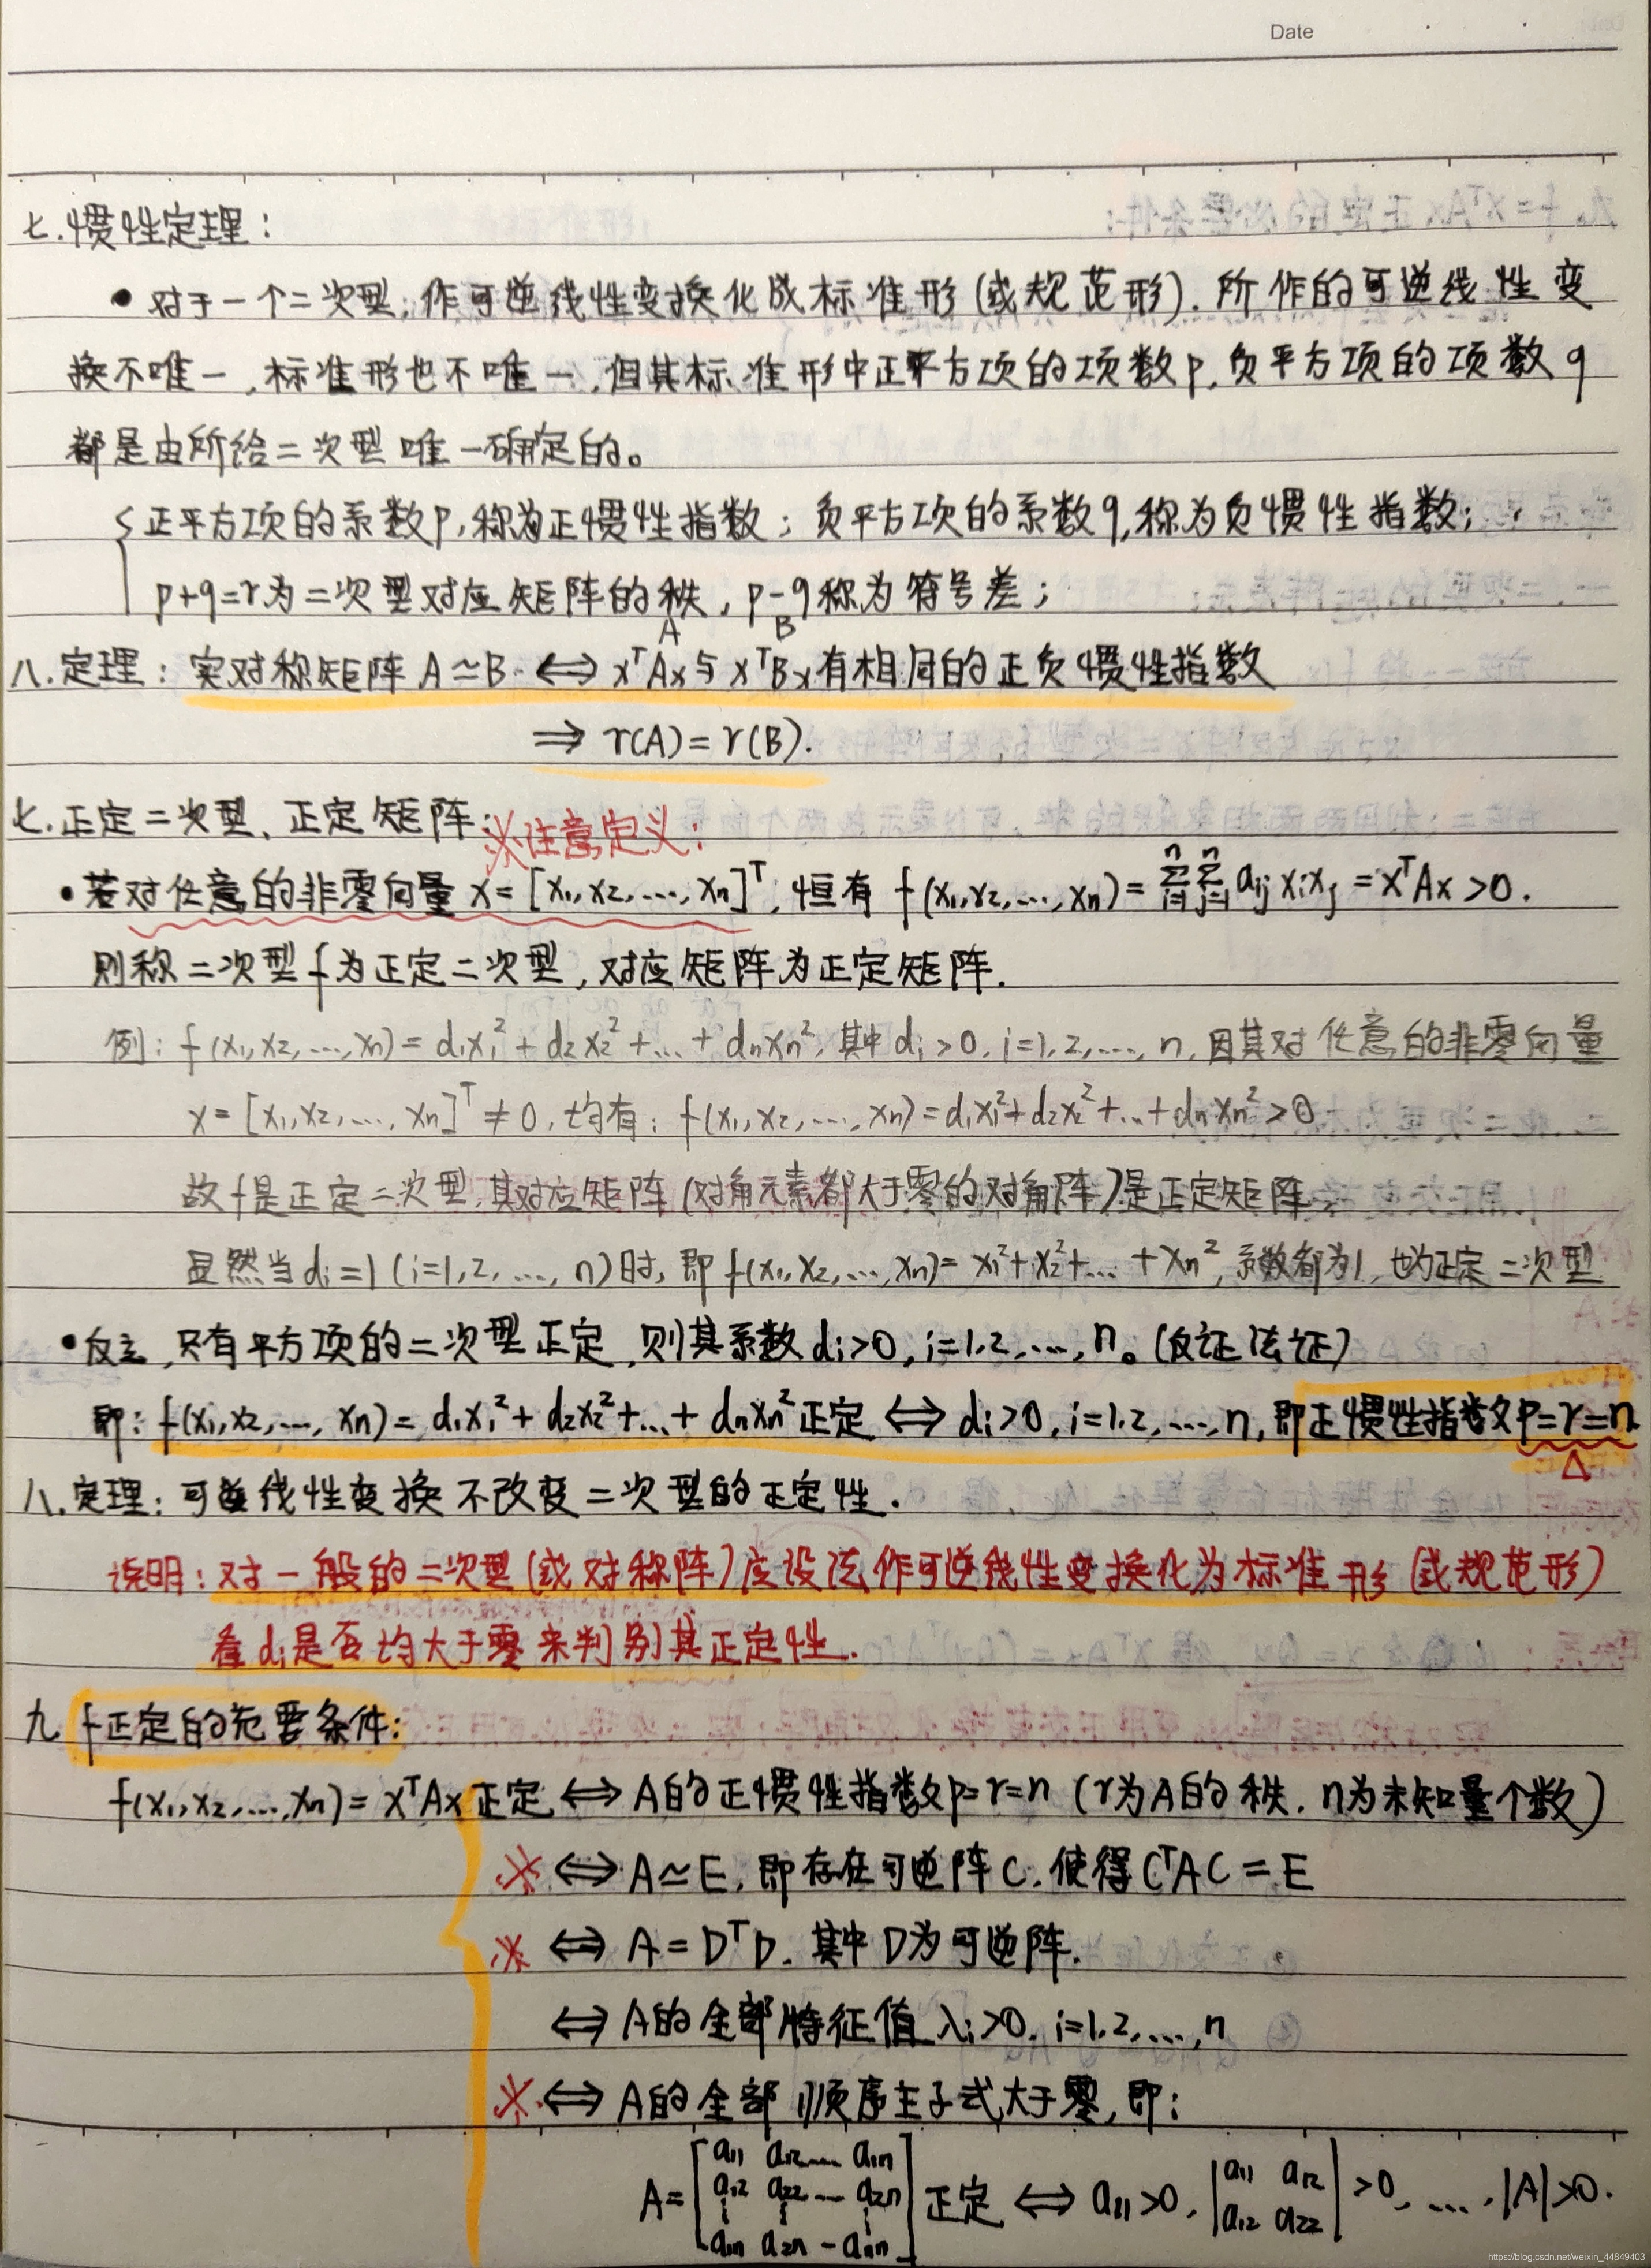 Date
七.惯性定理：
• 对于一个二次型,作可逆线性变换化成标准形(或规范形).所作的可逆线性变
换不唯一,标准形也不唯一,但其标准形中正平方项的项数p,负平方项的项数q
都是由所给二次型唯一确定的。
正平方项的系数p,称为正惯性指数；负平方项的系数q,称为负惯性指数；
p+q=r为二次型对应矩阵的秩,p-q称为符号差；
A B
八.定理：实对称矩阵A≃B ⟺ xᵀAx与xᵀBx有相同的正负惯性指数
⇒ r(A)=r(B).
七.正定二次型、正定矩阵：
※注意定义：
• 若对任意的非零向量x=[x₁,x₂,…,xₙ]ᵀ,恒有 f(x₁,x₂,…,xₙ)=∑ⁿᵢ₌₁∑ⁿⱼ₌₁aᵢⱼxᵢxⱼ=xᵀAx>0.
则称二次型f为正定二次型,对应矩阵为正定矩阵.
例：f(x₁,x₂,…,xₙ)=d₁x₁²+d₂x₂²+…+dₙxₙ²,其中dᵢ>0,i=1,2,…,n,因其对任意的非零向量
x=[x₁,x₂,…,xₙ]ᵀ≠0,均有：f(x₁,x₂,…,xₙ)=d₁x₁²+d₂x₂²+…+dₙxₙ²>0
故f是正定二次型,其对应矩阵(对角元素都大于零的对角阵)是正定矩阵.
显然当dᵢ=1(i=1,2,…,n)时,即f(x₁,x₂,…,xₙ)=x₁²+x₂²+…+xₙ²,系数都为1,也为正定二次型
• 反之,只有平方项的二次型正定,则其系数dᵢ>0,i=1,2,…,n。(反证法证)
即：f(x₁,x₂,…,xₙ)=d₁x₁²+d₂x₂²+…+dₙxₙ²正定 ⟺ dᵢ>0,i=1,2,…,n,即正惯性指数p=r=n
△
八.定理：可逆线性变换不改变二次型的正定性.
说明：对一般的二次型(或对称阵)应设法作可逆线性变换化为标准形(或规范形)
看dᵢ是否均大于零来判别其正定性.
九 f正定的充要条件：
f(x₁,x₂,…,xₙ)=xᵀAx正定 ⟺ A的正惯性指数p=r=n (r为A的秩,n为未知量个数)
※ ⟺ A≃E,即存在可逆阵C,使得CᵀAC=E
※ ⟺ A=DᵀD.其中D为可逆阵.
⟺ A的全部特征值λᵢ>0.i=1,2,…,n
※ ⟺ A的全部顺序主子式大于零,即：
A=[a₁₁ a₁₂…a₁ₙ
a₁₂ a₂₂…a₂ₙ
⋮ ⋮ ⋮
a₁ₙ a₂ₙ…aₙₙ] 正定 ⟺ a₁₁>0,|a₁₁ a₁₂
a₁₂ a₂₂|>0,…,|A|>0.
https://blog.csdn.net/weixin_44849403